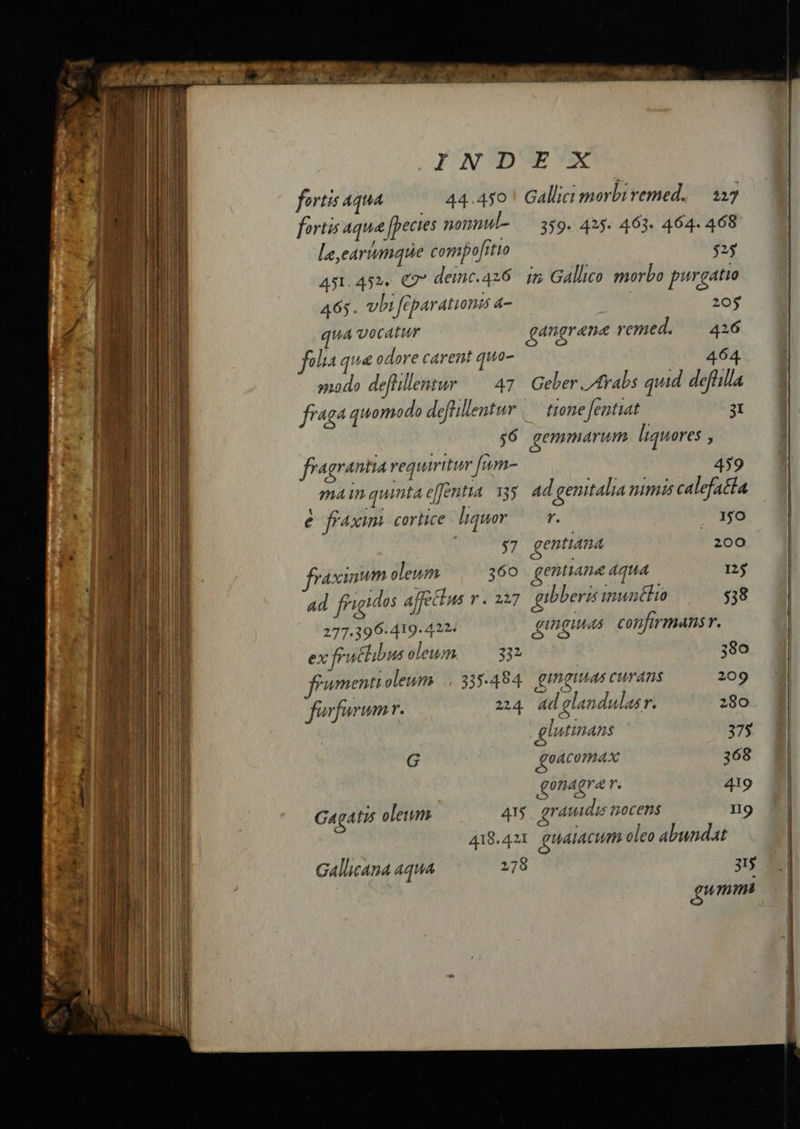 INDEX
fortis aqua 44.450
fortis aquæ ſpecies nonnul-
læ, earúmque compoſitio
451. 452. & deinc. 426
465. vbi ſeparationis a-
qua vocatur
folia quæ odore carent quo-
modo deſtillentur 47
fraga quomodo deſtillentur
56
fragrantia requiritur ſum-
ma in quinta eſſentia 135
è fraxini cortice liquor
57
fraxinum oleum 360
ad frigidos affectus r. 227
277.396.419.422.
ex fructibus oleum 332
frumenti oleum 335.484
furfurum r. 224
G
Gagatis oleum 415
418.421
Gallicana aqua 278
Gallici morbi remed. 227
359. 425. 463. 464. 468
525
in Gallico morbo purgatio
205
gangrænæ remed. 426
464
Geber Arabs quid deſtilla
tione ſentiat 31
gemmarum liquores,
459
ad genitalia nimis calefacta
r. 150
gentiana 200
gentianæ aqua 125
gibberis inunctio 538
gingiuas confirmans r.
380
gingiuas curans 209
ad glandulas r. 280
glutinans 375
goacomax 368
gonagræ r. 419
grauidis nocens 119
guaiacum oleo abundat
315
gummi